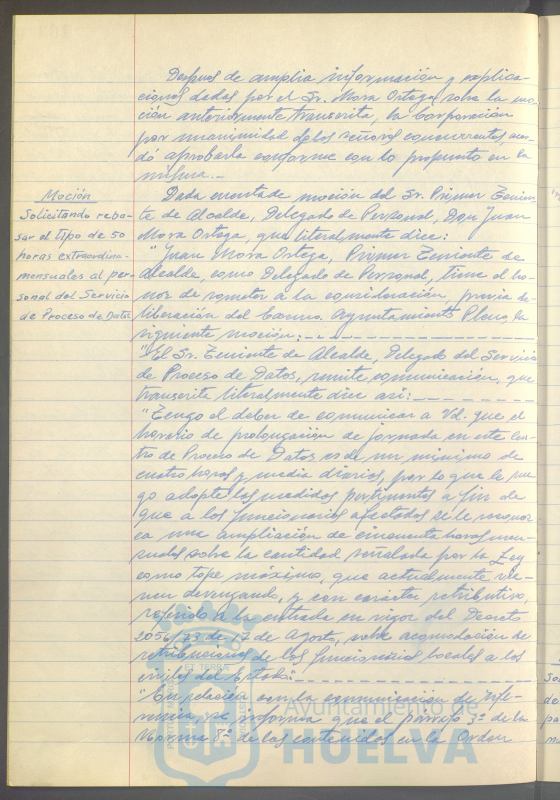 Despues de amplia información y explica-
ciones dadas por el Sr. Mora Ortega sobre la mo-
ción anteriormente transcrita, la Corporación
por unanimidad de los señores concurrentes, acor-
dó aprobarla conforme con lo propuesto en la
misma.-
Moción
Solicitando reba-
sar el tipo de 50
horas extraordina-
mensuales al per-
sonal del Servicio
de Proceso de Datos
Dada cuenta de moción del Sr. Primer Tenien-
te de Alcalde, Delegado de Personal, Don Juan
Mora Ortega, que literalmente dice:
"Juan Mora Ortega, Primer Teniente de
Alcalde, como Delegado de Personal, tiene el ho-
nor de someter a la consideración, previa de-
liberación del Excmo. Ayuntamiento Pleno, la
siguiente moción:
"El Sr. Teniente de Alcalde, Delegado del Servicio
de Proceso de Datos, remite comunicación, que
transcrita literalmente dice así:
"Tengo el deber de comunicar a Vd. que el
horario de prolongación de jornada en este Cen-
tro de Proceso de Datos es de un mínimo de
cuatro horas y media diarias, por lo que le rue-
go adopte las medidas pertinentes a fin de
que a los funcionarios afectados se le reconoz-
ca una ampliación de cincuenta horas men-
suales sobre la cantidad señalada por la Ley
como tope máximo, que actualmente vie-
nen devengando, y con carácter retributivo,
referido a la entrada en vigor del Decreto
2056/73 de 17 de Agosto, sobre acomodación de
retribuciones de los funcionarios locales a los
civiles del Estado."
"En relación con la comunicación de refe-
rencia, se informa que el párrafo 3º de la
Norma 8ª de las contenidas en la Orden
Ayuntamiento de
HUELVA